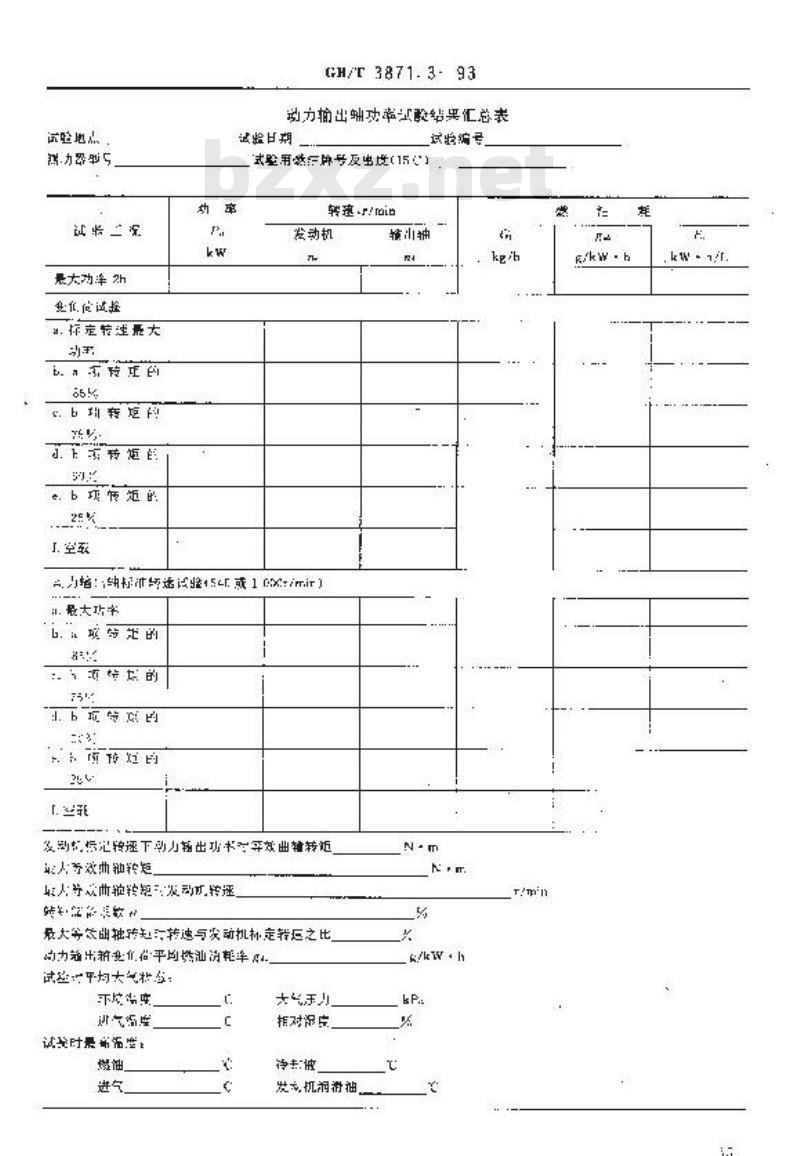 GB/T 3871.3-93
动力输出轴功率试验结果汇总表
试验地点 试验日期 试验编号
测功器型号 试验用燃油牌号及密度(15℃)
bzxz.net
试验工况 功率 转速 r/min 燃油耗
发动机 输出轴
kW kg/h g/kW·h kW·h/L
最大功率 2h
变负荷试验
a. 标定转速最大
功率
b. a 项转矩的
85%
c. b 项转矩的
75%
d. b 项转矩的
50%
e. b 项转矩的
25%
f. 空载
动力输出轴标准转速试验(540 或 1 000r/min)
a. 最大功率
b. a 项转矩的
85%
c. b 项转矩的
75%
d. b 项转矩的
50%
e. b 项转矩的
25%
f. 空载
发动机标定转速下动力输出功率时等效曲轴转矩 N·m
最大等效曲轴转矩 N·m
最大等效曲轴转矩时发动机转速 r/min
转矩储备系数 %
最大等效曲轴转矩时转速与发动机标定转速之比 %
动力输出轴变负荷平均燃油消耗率 g/kW·h
试验时平均大气状态:
环境温度 ℃ 大气压力 kPa
进气温度 ℃ 相对湿度 %
试验时最高温度:
燃油 ℃ 冷却液 ℃
进气 ℃ 发动机润滑油 ℃